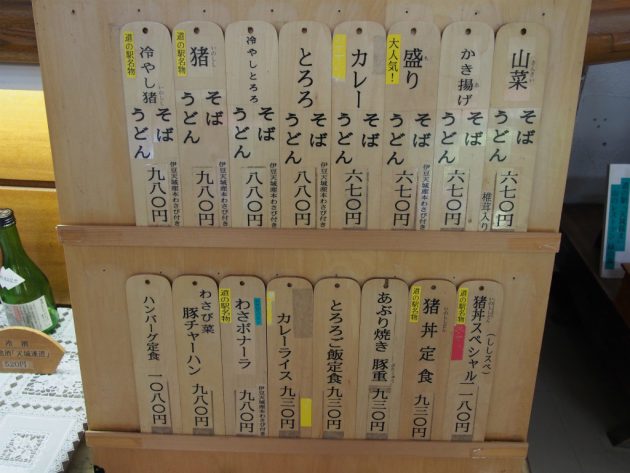 山菜
さんさい
そば
うどん
六七〇円
椎茸入り
かき揚げ
そば
うどん
六七〇円
大人気!
盛り
そば
うどん
六七〇円
伊豆天城産本わさび付き
カレー
そば
うどん
六七〇円
とろろ
そば
うどん
八八〇円
伊豆天城産本わさび付き
冷やしとろろ
そば
うどん
八八〇円
伊豆天城産本わさび付き
道の駅名物
猪
いのしし
そば
うどん
九八〇円
道の駅名物
冷やし猪
そば
うどん
九八〇円
伊豆天城産本わさび付き
道の駅名物
猪丼スペシャル
(ししスペ)
一一八〇円
道の駅名物
猪丼定食
九三〇円
あぶり焼き 豚重
九三〇円
とろろご飯定食
九三〇円
カレーライス
九三〇円
道の駅名物
わさボナーラ
九八〇円
伊豆天城産本わさび付き
わさび菜
豚チャーハン
九八〇円
ハンバーグ定食
一〇八〇円
冷酒
「天城連道」
520円